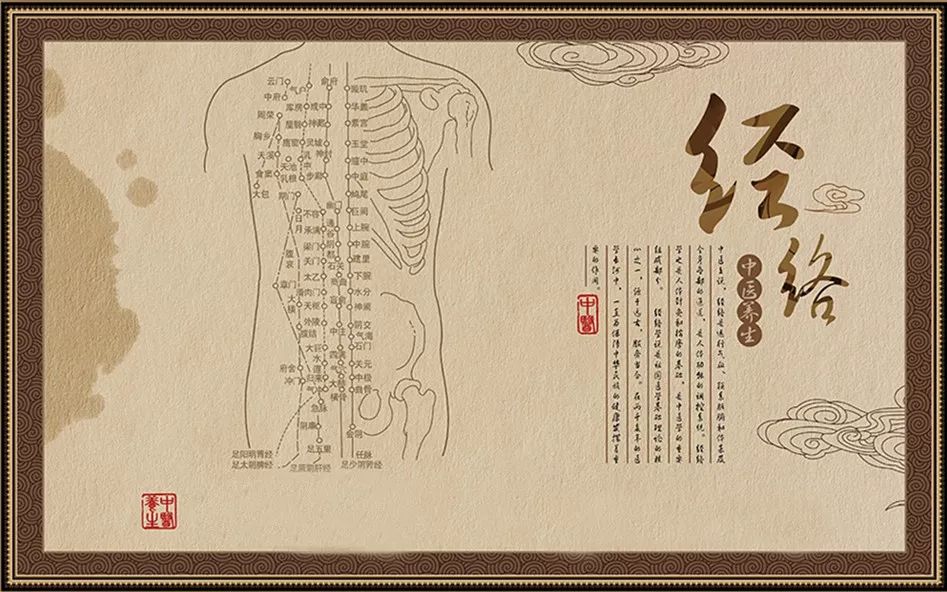 经络
中医养生
中医上说，经络是运行气血、联系脏腑和体表及
全身各部的通道，是人体功能的调控系统。经络
学也是人体针灸和按摩的基础，是中医学的重要
组成部分。 经络学说是祖国医学基础理论的核
心之一，源于远古，服务当今。在两千多年的医
学长河中，一直为保障中华民族的健康发挥着重
要的作用。
中醫
云门
气户
俞府
璇玑
中府
库房
彧中
华盖
周荣
屋翳
神藏
紫宫
胸乡
鹰窗
灵墟
玉堂
天溪
天池
乳中
神封
膻中
食窦
乳根
步廊
中庭
大包
期门
鸠尾
日月
不容
幽门
巨阙
承满
通谷
上脘
腹哀
梁门
阴都
中脘
关门
石关
建里
章门
太乙
商曲
下脘
大横
滑肉门
肓俞
水分
天枢
神阙
外陵
中注
阴交
腹结
气海
大巨
四满
石门
水道
气穴
关元
府舍
归来
大赫
中极
冲门
气冲
横骨
曲骨
急脉
阴廉
会阴
足五里
足阳明胃经
足太阴脾经
足厥阴肝经
任脉
足少阴肾经
中醫養生